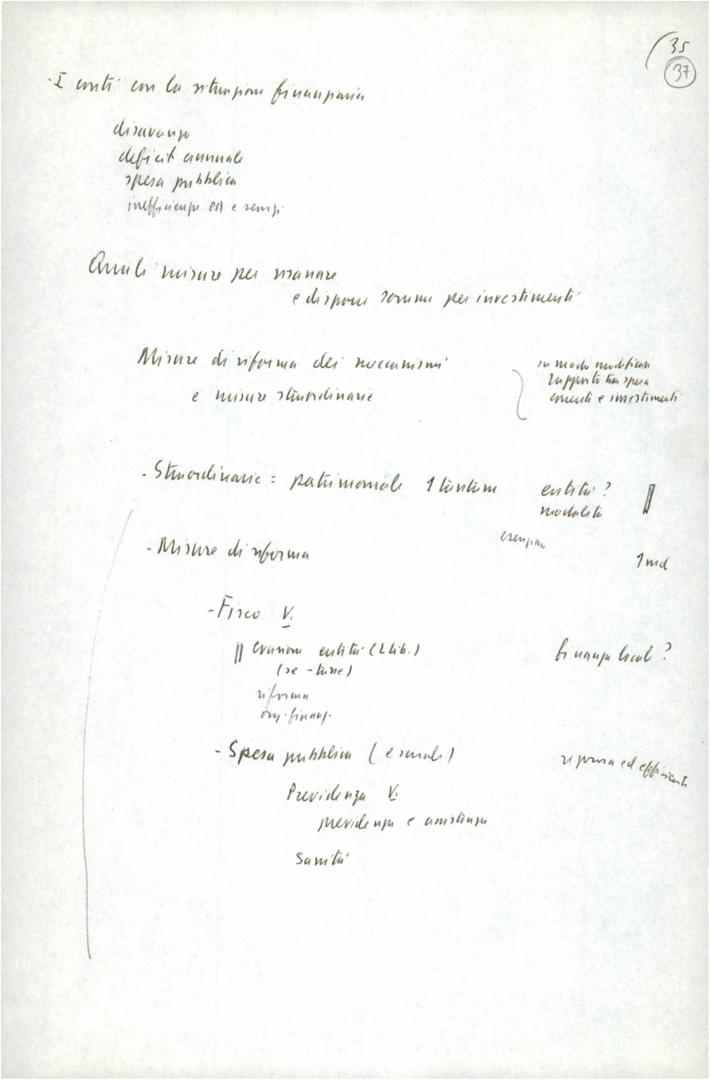 35
37
- I conti con la situazione finanziaria
disavanzo
deficit annuale
spesa pubblica
inefficienze e servizi
Quali misure per risanare
e disporre somme per investimenti
Misure di riforma dei meccanismi
e misure straordinarie
in modo modificare
rapporti tra spesa
correnti e investimenti
- Straordinarie = patrimoniale 1 tantum
entità?
modalità
- Misure di riforma
1 md
- Fisco V.
evasione entità (2 lib.)
(se - tasse)
riforma
finanza local?
- Spesa pubblica (e sociale)
ripresa ed efficienti
Previdenza V.
previdenza e assistenza
Sanità